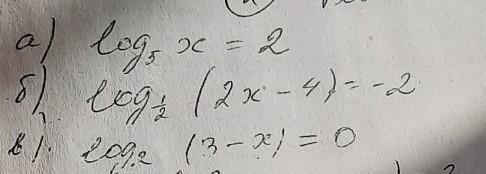 а) log₅ x = 2
б) log_{1/2} (2x - 4) = -2
в). log₂ (3 - x) = 0